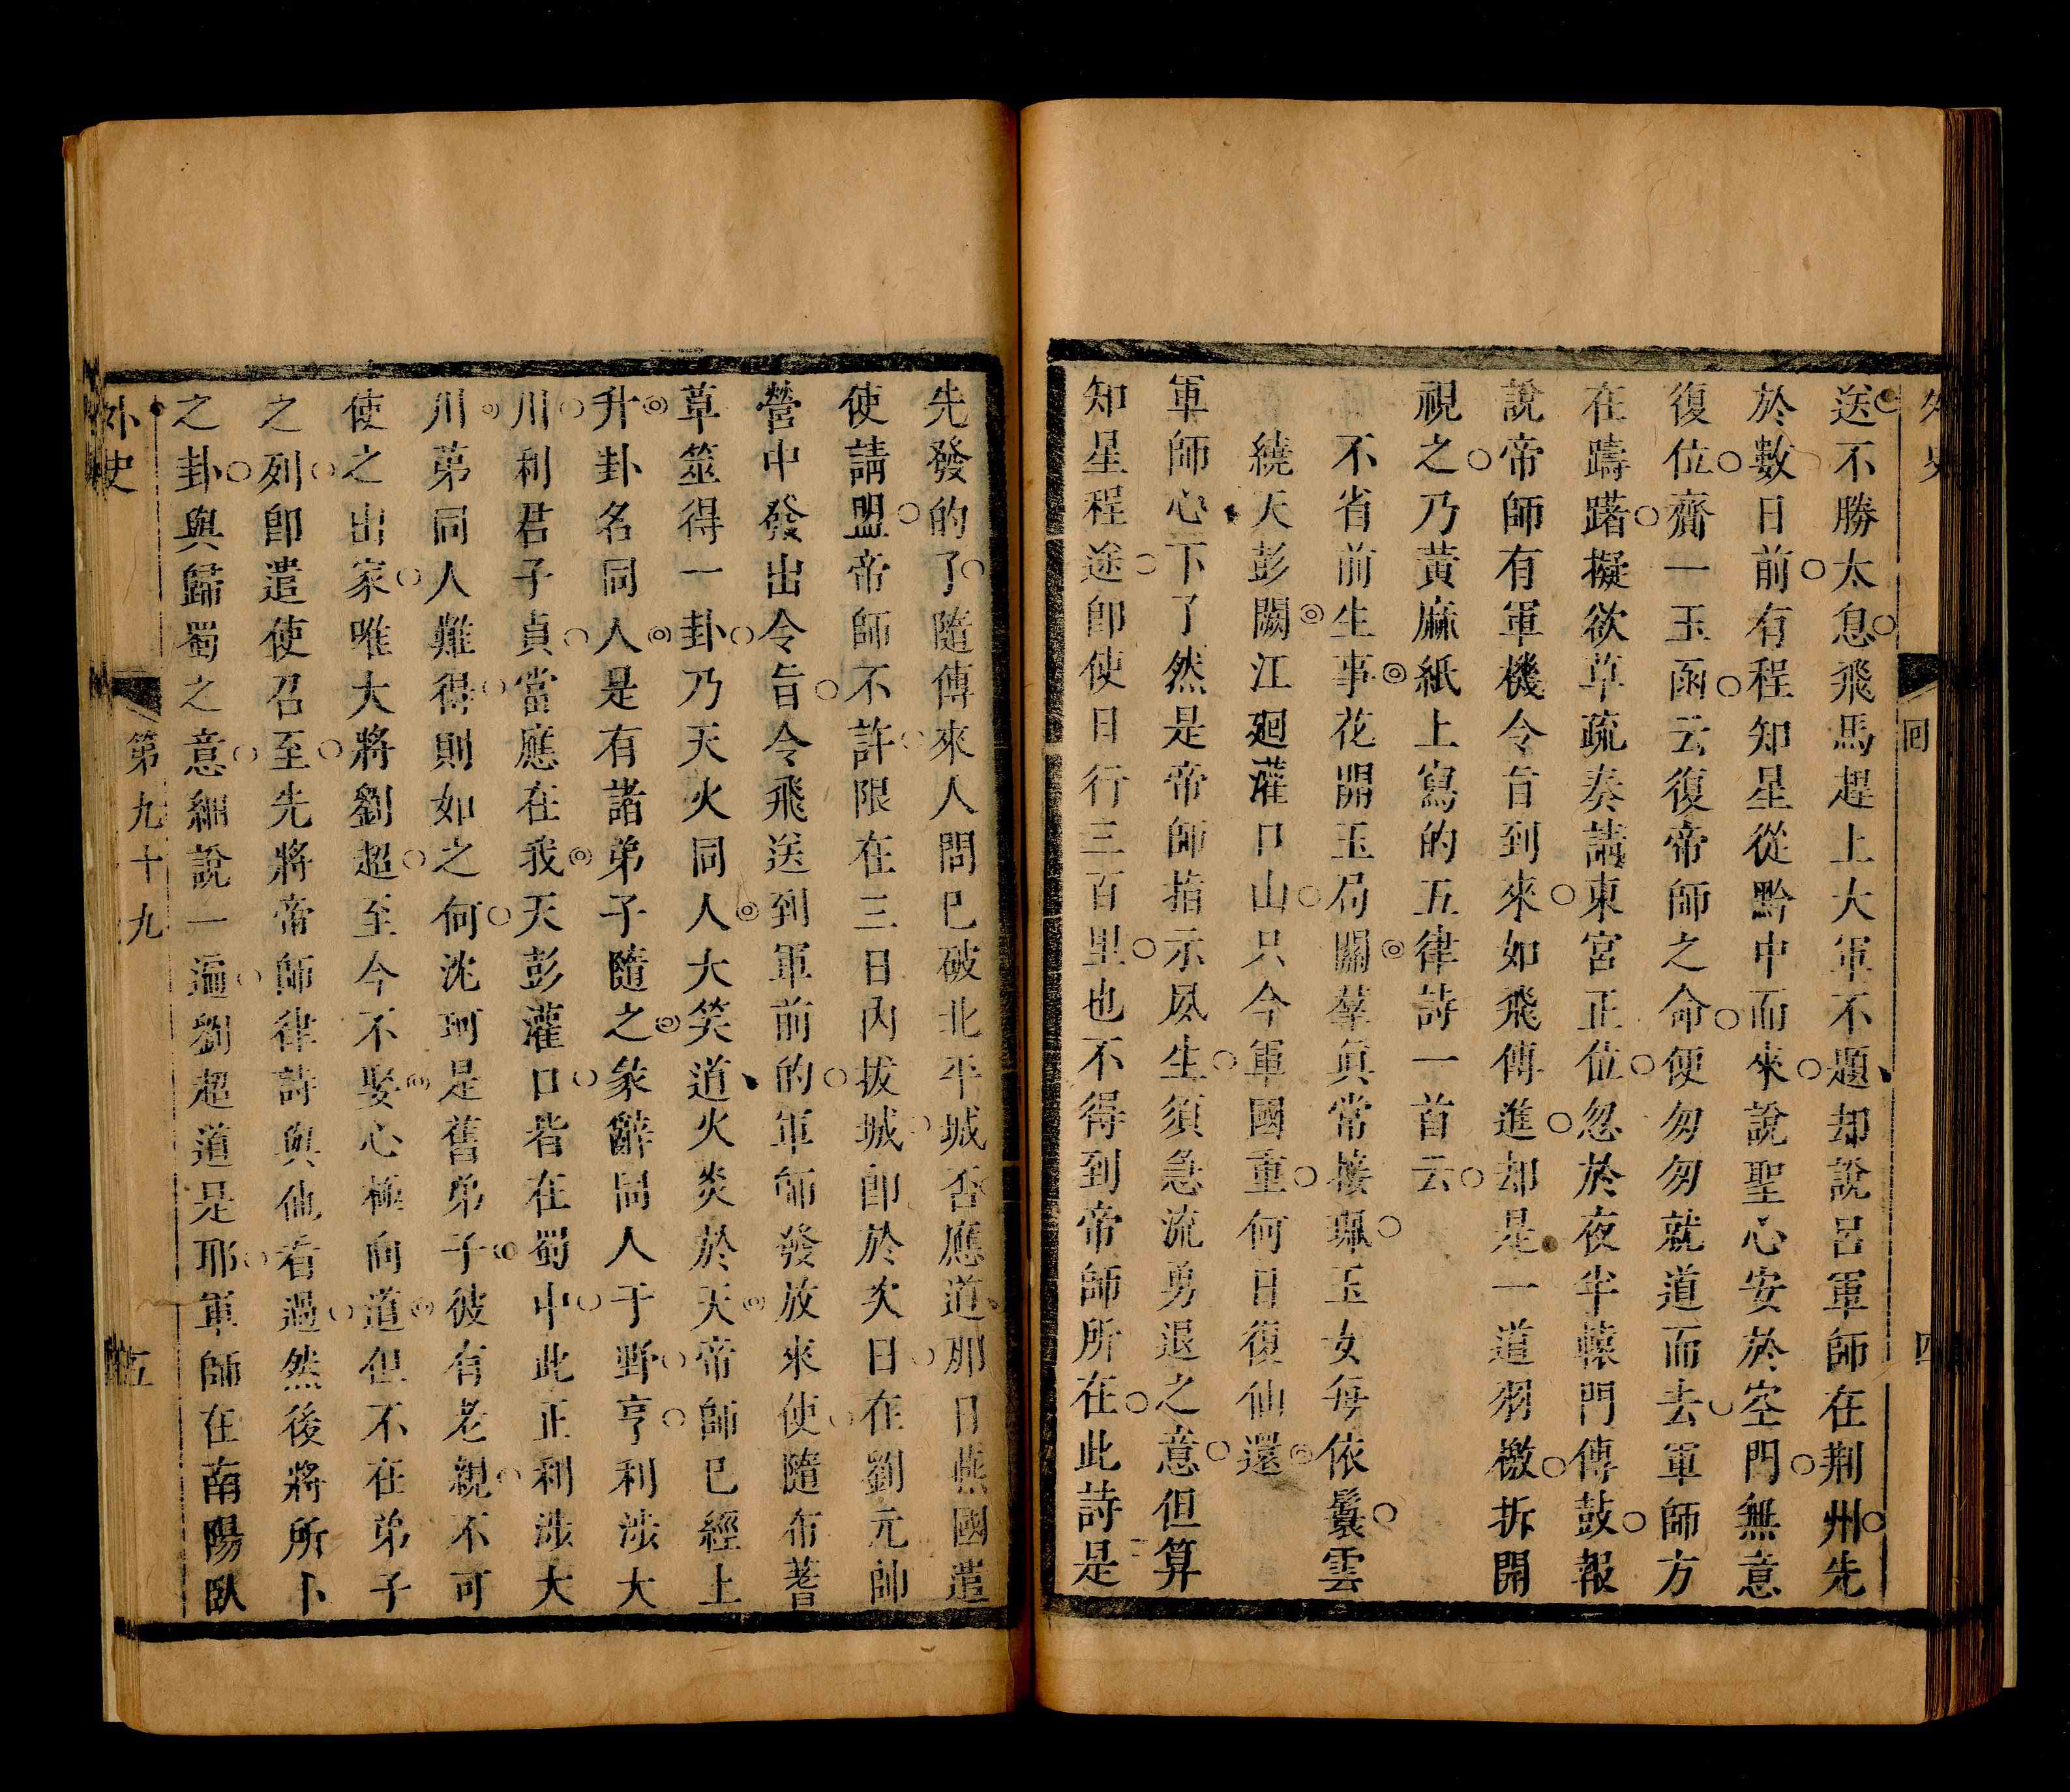 外史
回
四
送不勝太息飛馬趕上大軍不題却說呂軍師在荆州先
於數日前有程知星從黔中而來說聖心安於空門無意
復位齎一玉函云復帝師之命便匆匆就道而去軍師方
在躊躇擬欲草疏奏請東宮正位忽於夜半轅門傳鼓報
說帝師有軍機令旨到來如飛傳進却是一道羽檄拆開
視之乃黃麻紙上寫的五律詩一首云
不省前生事花開玉局關羣眞常接珮玉女每依鬟雲
繞天彭闕江廻灌口山只今軍國重何日復仙還
軍師心下了然是帝師指示夙生須急流勇退之意但算
知星程途卽使日行三百里也不得到帝師所在此詩是
先發的了隨傳來人問已破北平城否應道那日燕國遣
使請盟帝師不許限在三日內拔城卽於次日在劉元帥
營中發出令旨令飛送到軍前的軍師發放來使隨布蓍
草筮得一卦乃天火同人大笑道火炎於天帝師已經上
升卦名同人是有諸弟子隨之彖辭同人于野亨利涉大
川利君子貞當應在我天彭灌口皆在蜀中此正利涉大
川弟同人難得則如之何沈珂是舊弟子彼有老親不可
使之出家唯大將劉超至今不娶心極向道但不在弟子
之列卽遣使召至先將帝師律詩與他看過然後將所卜
之卦與歸蜀之意細說一遍劉超道是耶軍師在南陽臥
外史
第九十九
五